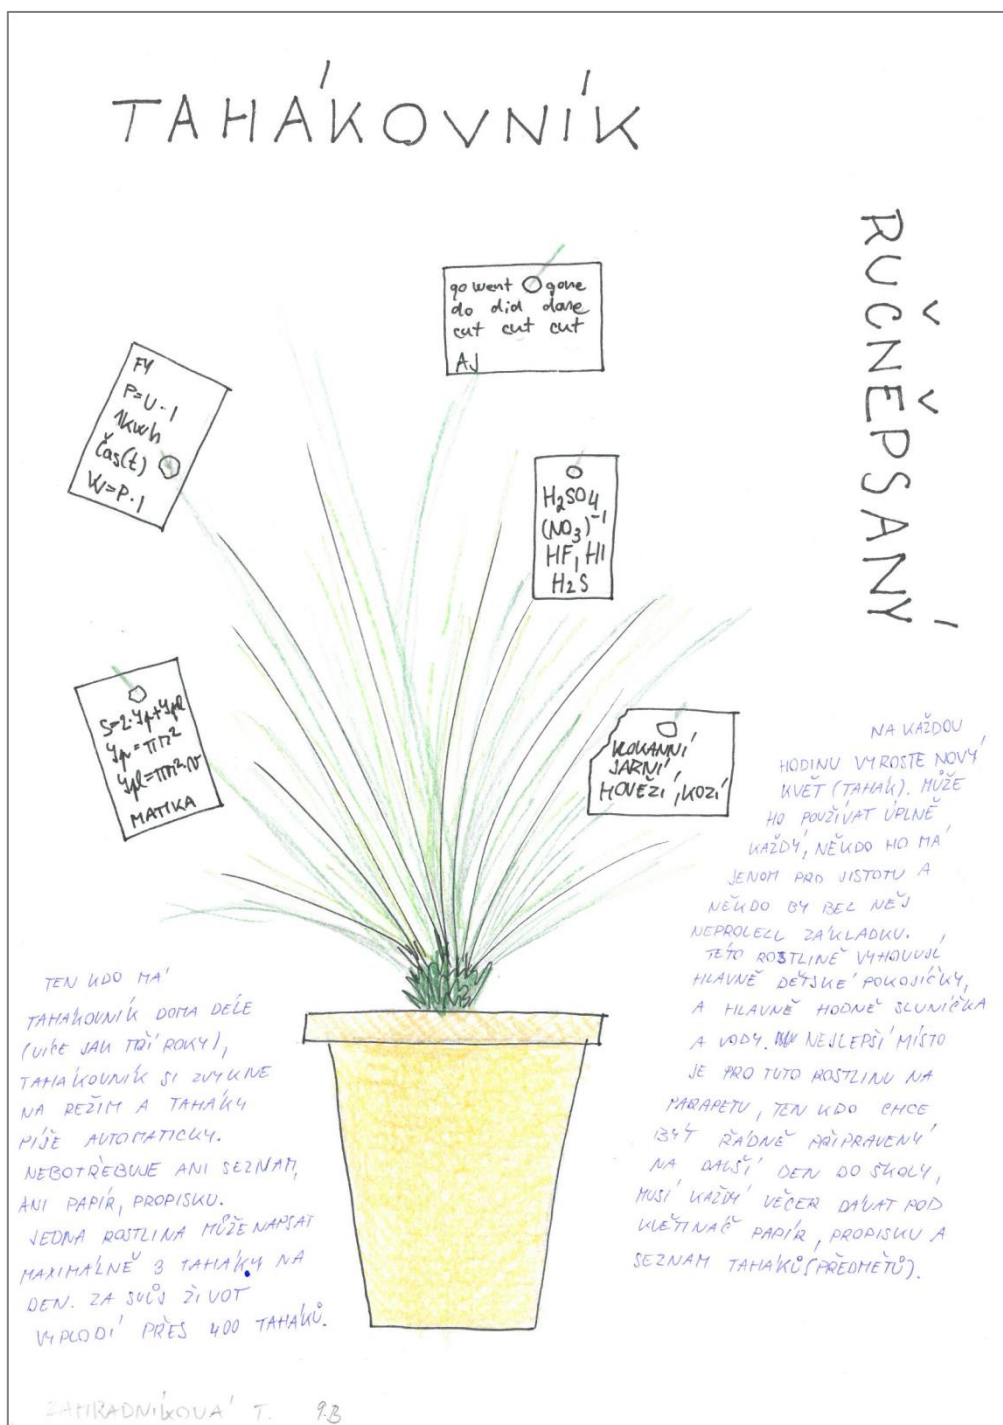 TAHÁKOVNÍK
RUČNĚPSANÝ
go went gone
do did done
cut cut cut
AJ
FY
P=U·I
1kwh
čas(t)
W=P·1
H₂SO₄
(NO₃)⁻¹
HF, HI
H₂S
S=2·Sp+Spl
Sp=πr²
Spl=πr²·v
MATIKA
JARNÍ,
HOVĚZÍ, KOZÍ
NA KAŽDOU
HODINU VYROSTE NOVÝ
KVĚT (TAHÁK). MŮŽE
HO POUŽÍVAT ÚPLNĚ
KAŽDÝ, NĚKDO HO MÁ
JENOM PRO JISTOTU A
NĚKDO BY BEZ NĚJ
NEPROLEZL ZÁKLADKU.
TÉTO ROSTLINĚ VYHOVUJÍ
HLAVNĚ DĚTSKÉ POKOJÍČKY,
A HLAVNĚ HODNĚ SLUNÍČKA
A VODY. NEJLEPŠÍ MÍSTO
JE PRO TUTO ROSTLINU NA
PARAPETU, TEN KDO CHCE
BÝT ŘÁDNĚ PŘIPRAVENÝ
NA DALŠÍ DEN DO ŠKOLY,
MUSÍ KAŽDÝ VEČER DÁVAT POD
KVĚTINÁČ PAPÍR, PROPISKU A
SEZNAM TAHÁKŮ(PŘEDMĚTŮ).
TEN KDO MÁ
TAHÁKOVNÍK DOMA DÉLE
(VÍCE JAK TŘI ROKY),
TAHÁKOVNÍK SI ZVYKNE
NA REŽIM A TAHÁKY
PÍŠE AUTOMATICKY.
NEBOTŘEBUJE ANI SEZNAM,
ANI PAPÍR, PROPISKU.
JEDNA ROSTLINA MŮŽE NAPSAT
MAXIMÁLNĚ 3 TAHÁKY NA
DEN. ZA SVŮJ ŽIVOT
VYPLODÍ PŘES 400 TAHÁKŮ.
ZAHRADNÍKOVÁ T. 9.B